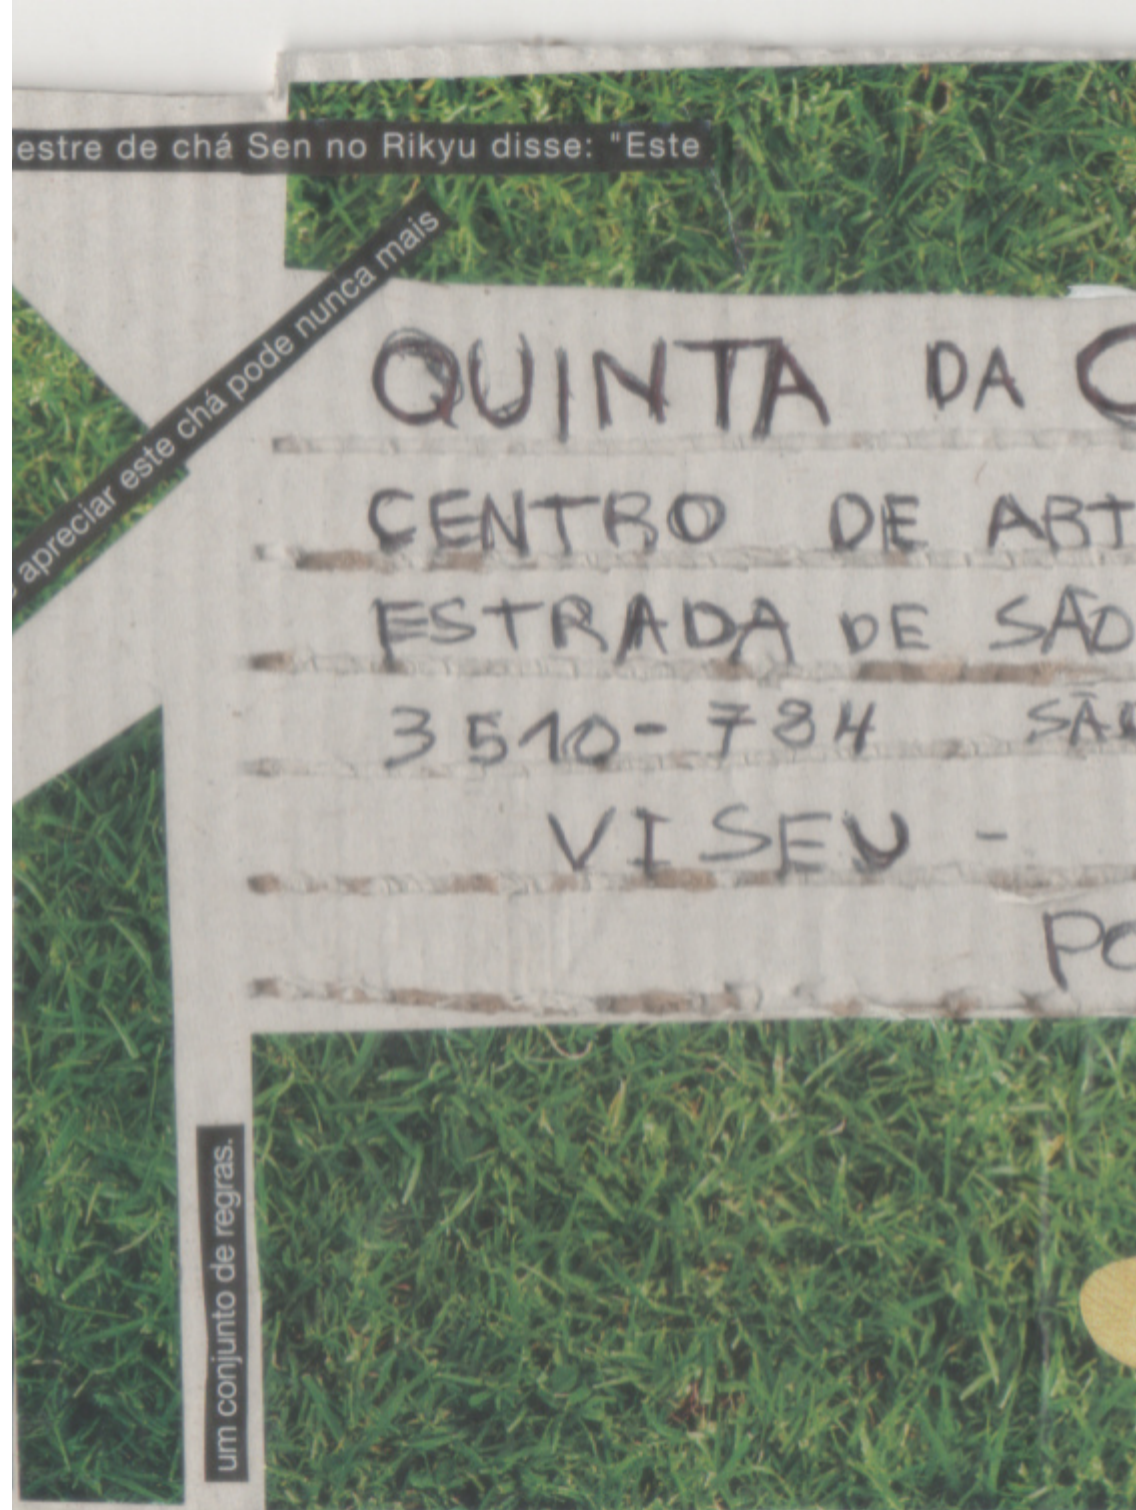 estre de chá Sen no Rikyu disse: "Este
apreciar este chá pode nunca mais
QUINTA DA C
CENTRO DE ART
ESTRADA DE SÃO
3510-784 SÃO
VISEU -
PO
um conjunto de regras.